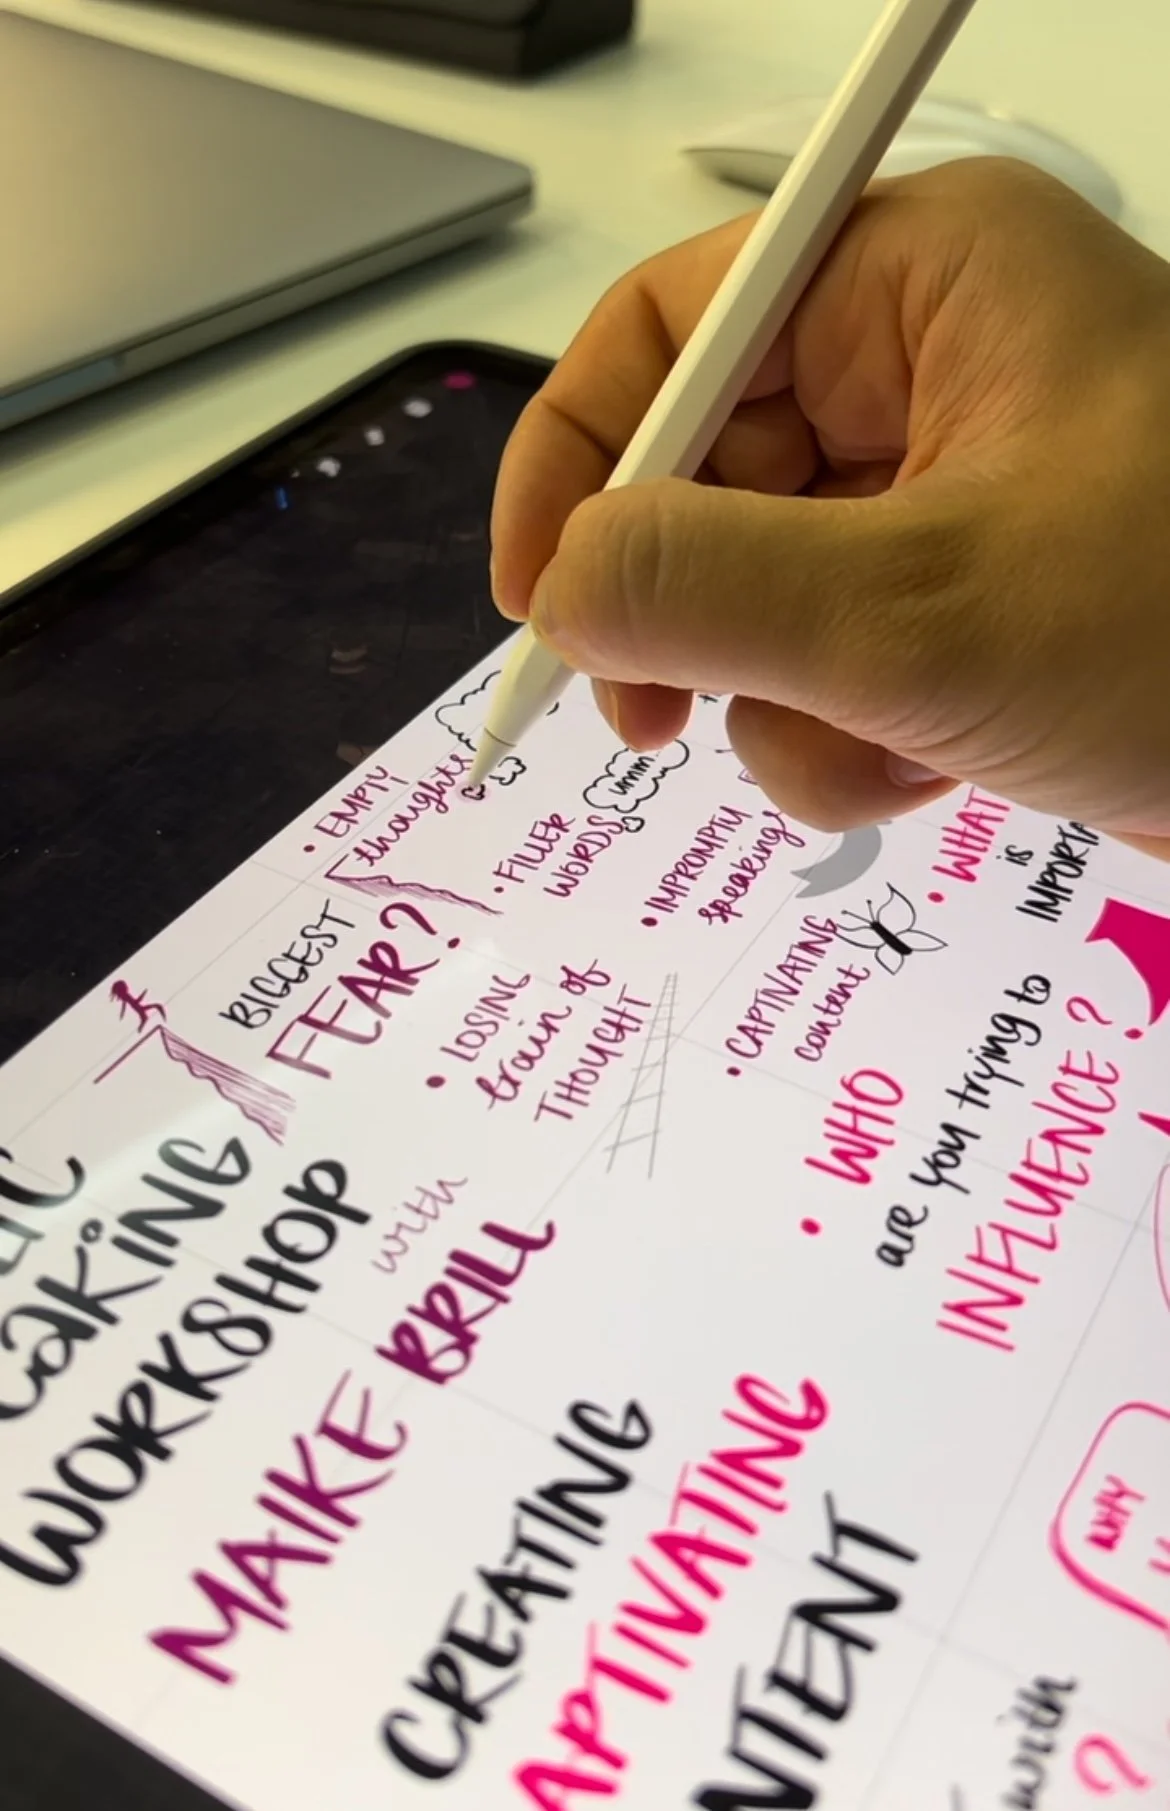 WORKSHOP
with
MAIKE BRILL
BIGGEST
FEAR?
• EMPTY
thoughts
• FILLER
WORDS
umm
• IMPROMPTY
speaking
• LOSING
train of
THOUGHT
• CAPTIVATING
content
CREATING
APTIVATING
NTENT
• WHAT
is
• WHO
are you trying to
INFLUENCE?
WHY
with
?